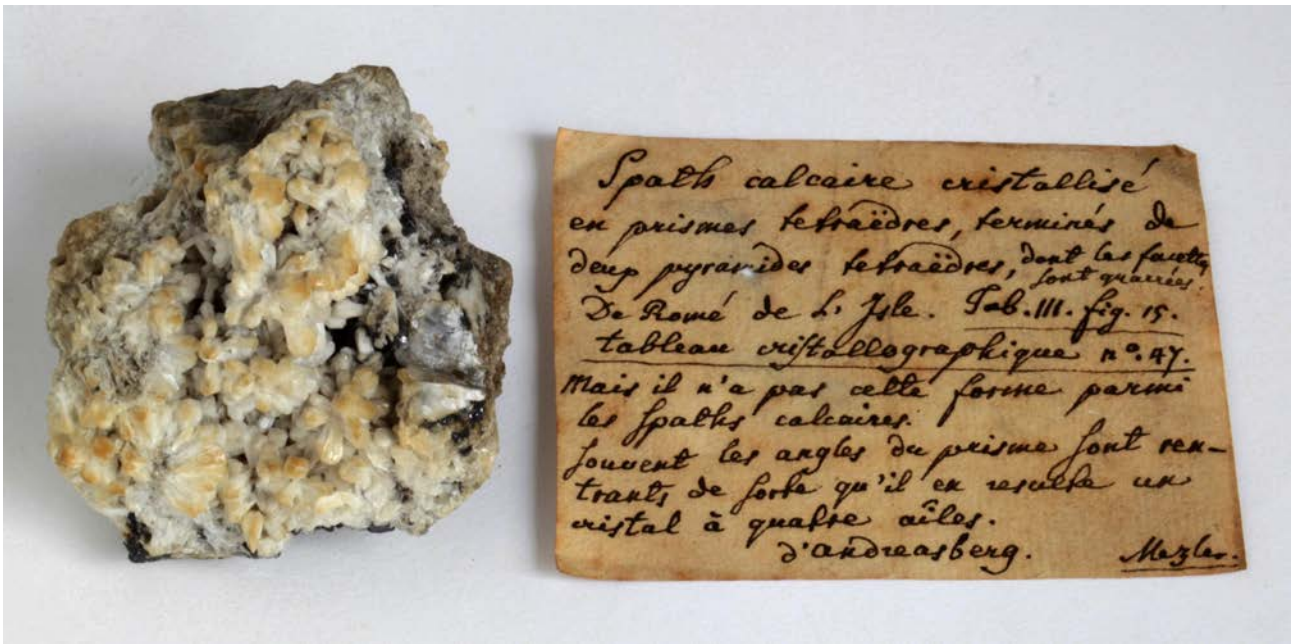 Spath calcaire cristallisé
en prismes tetraëdres, terminés de
deux pyramides tetraëdres, dont les facettes
sont quarrées.
De Romé de L'Isle. Tab. III. fig. 15.
tableau cristallographique nº. 47.
Mais il n'a pas cette forme parmi
les Spaths calcaires.
Souvent les angles du prisme sont ren-
trants de sorte qu'il en resulte un
cristal à quatre aîles.
d'Andreasberg. Mezler.